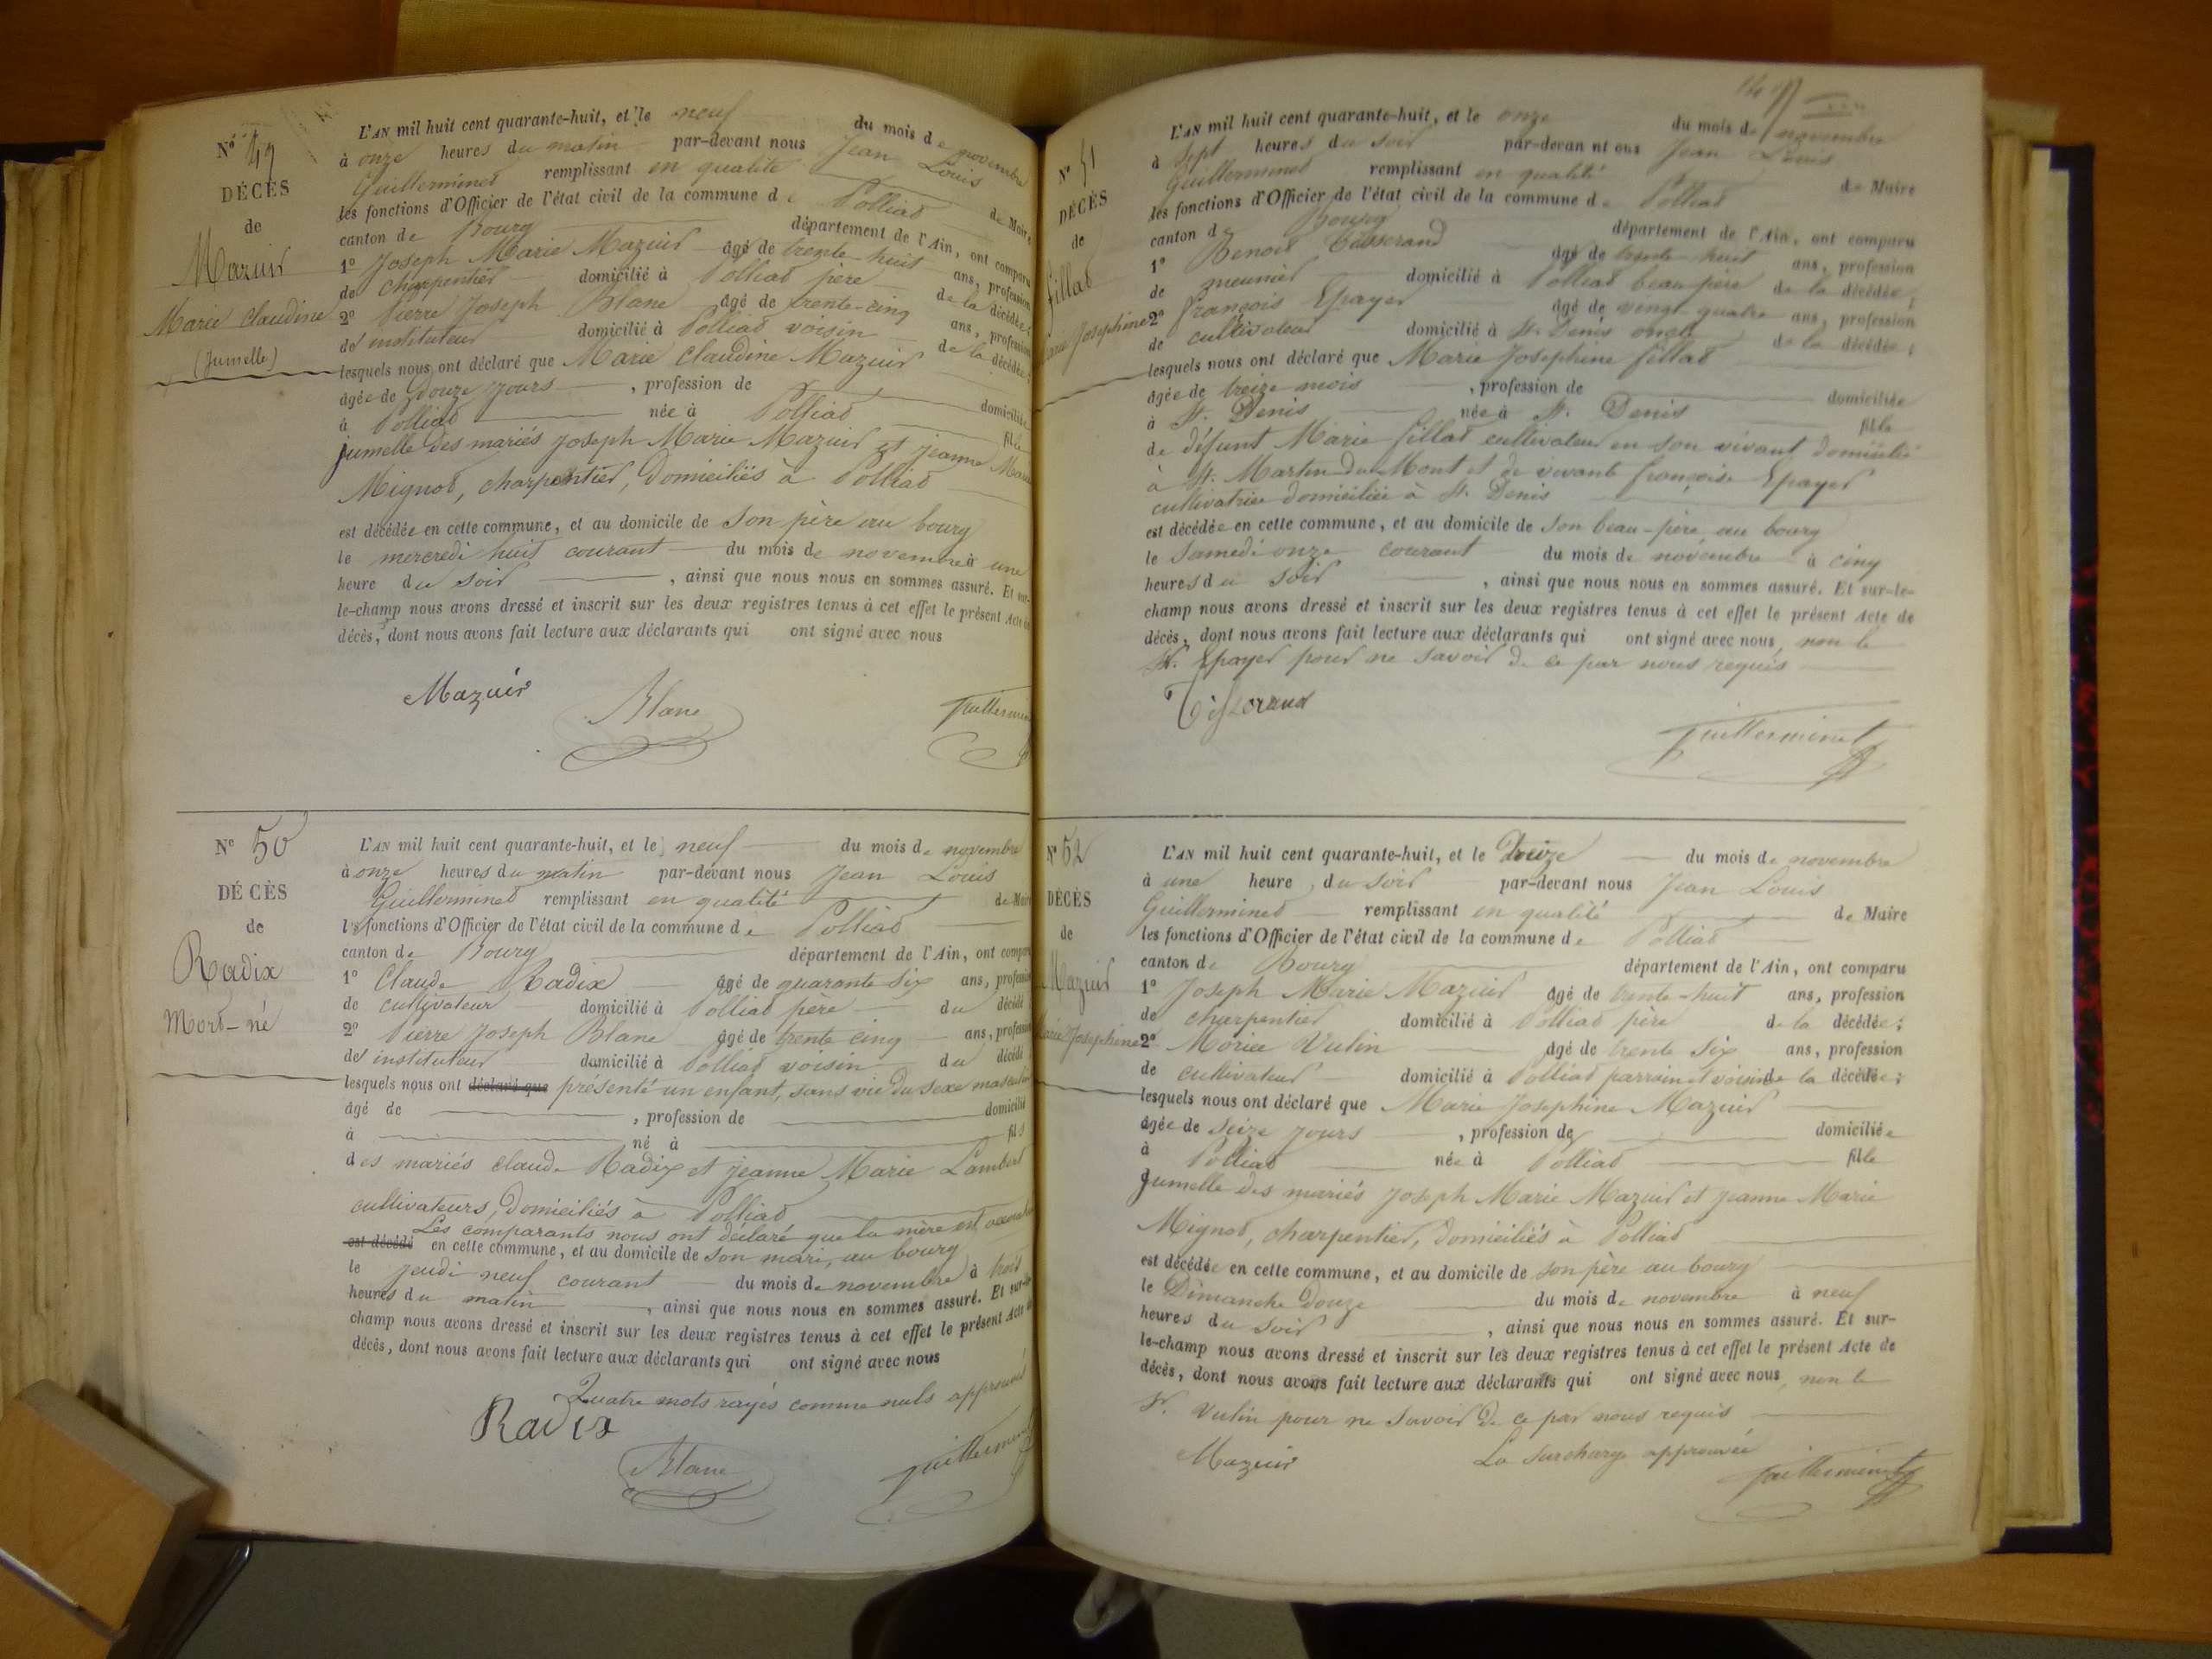 N° 49
DÉCÈS
de
Mazuir
Marie Claudine
(Jumelle)
L'AN mil huit cent quarante-huit, et le neuf du mois de novembre
à onze heures du matin par-devant nous Jean Louis
Guillerminet remplissant en qualité de Maire
les fonctions d'Officier de l'état civil de la commune de Polliat
canton de Bourg département de l'Ain, ont comparu
1° Joseph Marie Mazuir âgé de trente huit ans, profession
de charpentier domicilié à Polliat père de la décédée;
2° Pierre Joseph Blanc âgé de trente-cinq ans, profession
de instituteur domicilié à Polliat voisin de la décédée;
lesquels nous ont déclaré que Marie Claudine Mazuir
âgée de douze jours, profession de domiciliée
à Polliat née à Polliat fille
jumelle des mariés Joseph Marie Mazuir et jeanne Marie
Mignot, charpentier, domiciliés à Polliat
est décédée en cette commune, et au domicile de son père au bourg
le mercredi huit courant du mois de novembre à une
heure du soir, ainsi que nous nous en sommes assuré. Et sur-
le-champ nous avons dressé et inscrit sur les deux registres tenus à cet effet le présent Acte de
décès, dont nous avons fait lecture aux déclarants qui ont signé avec nous
Mazuir Blanc Guillermin
N° 50
DÉCÈS
de
Radix
Mort-né
L'AN mil huit cent quarante-huit, et le neuf du mois de novembre
à onze heures du matin par-devant nous Jean Louis
Guillerminet remplissant en qualité de Maire
les fonctions d'Officier de l'état civil de la commune de Polliat
canton de Bourg département de l'Ain, ont comparu
1° Claude Radix âgé de quarante six ans, profession
de cultivateur domicilié à Polliat père du décédé
2° Pierre Joseph Blanc âgé de trente cinq ans, profession
de instituteur domicilié à Polliat voisin du décédé
lesquels nous ont déclaré que présenté un enfant, sans vie du sexe masculin
âgé de , profession de domicilié
à né à fils
des mariés Claude Radix et jeanne Marie Lambert
cultivateurs, domiciliés à Polliat
Les comparants nous ont déclaré que la mère est accouchée
est décédé en cette commune, et au domicile de son mari, au bourg
le jeudi neuf courant du mois de novembre à trois
heures du matin, ainsi que nous nous en sommes assuré. Et sur-le-
champ nous avons dressé et inscrit sur les deux registres tenus à cet effet le présent Acte de
décès, dont nous avons fait lecture aux déclarants qui ont signé avec nous
Quatre mots rayés comme nuls approuvés
Radix
Blanc Guillermin
N° 51
DÉCÈS
de
fillat
Marie Josephine
L'AN mil huit cent quarante-huit, et le onze du mois de novembre
à sept heures du soir par-devan nt ous Jean Louis
Guillerminet remplissant en qualité de Maire
les fonctions d'Officier de l'état civil de la commune de Polliat
canton de Bourg département de l'Ain, ont comparu
1° Benoit Tisserand âgé de trente-huit ans, profession
de meunier domicilié à Polliat beau-père de la décédée;
2° françois Epayer âgé de vingt-quatre ans, profession
de cultivateur domicilié à St. Denis oncle de la décédée;
lesquels nous ont déclaré que Marie Josephine fillat
âgée de treize mois, profession de domiciliée
à St. Denis née à St. Denis fille
de défunt Marie fillat cultivateur en son vivant domicilié
à St. Martin-du-Mont et de vivante françoise Epayer
cultivatrice domiciliée à St. Denis
est décédée en cette commune, et au domicile de son beau-père au bourg
le Samedi onze courant du mois de novembre à cinq
heures du soir, ainsi que nous nous en sommes assuré. Et sur-le-
champ nous avons dressé et inscrit sur les deux registres tenus à cet effet le présent Acte de
décès, dont nous avons fait lecture aux déclarants qui ont signé avec nous, non le
Sr. Epayer pour ne savoir de ce par nous requis
Tisserand
Guillerminet
N° 52
DÉCÈS
de
Mazuir
Marie Josephine
L'AN mil huit cent quarante-huit, et le treize du mois de novembre
à une heure du soir par-devant nous Jean Louis
Guillerminet remplissant en qualité de Maire
les fonctions d'Officier de l'état civil de la commune de Polliat
canton de Bourg département de l'Ain, ont comparu
1° Joseph Marie Mazuir âgé de trente-huit ans, profession
de charpentier domicilié à Polliat père de la décédée;
2° Morice Vulin âgé de trente six ans, profession
de cultivateur domicilié à Polliat parrain et voisin de la décédée;
lesquels nous ont déclaré que Marie Josephine Mazuir
âgée de seize jours, profession de domiciliée
à Polliat née à Polliat fille
Jumelle des mariés Joseph Marie Mazuir et jeanne Marie
Mignot, charpentier, domiciliés à Polliat
est décédée en cette commune, et au domicile de son père au bourg
le Dimanche Douze du mois de novembre à neuf
heures du soir, ainsi que nous nous en sommes assuré. Et sur-
le-champ nous avons dressé et inscrit sur les deux registres tenus à cet effet le présent Acte de
décès, dont nous avons fait lecture aux déclarants qui ont signé avec nous, non le
Sr. Vulin pour ne savoir de ce par nous requis
La surcharge approuvée
Mazuir Guillerminet